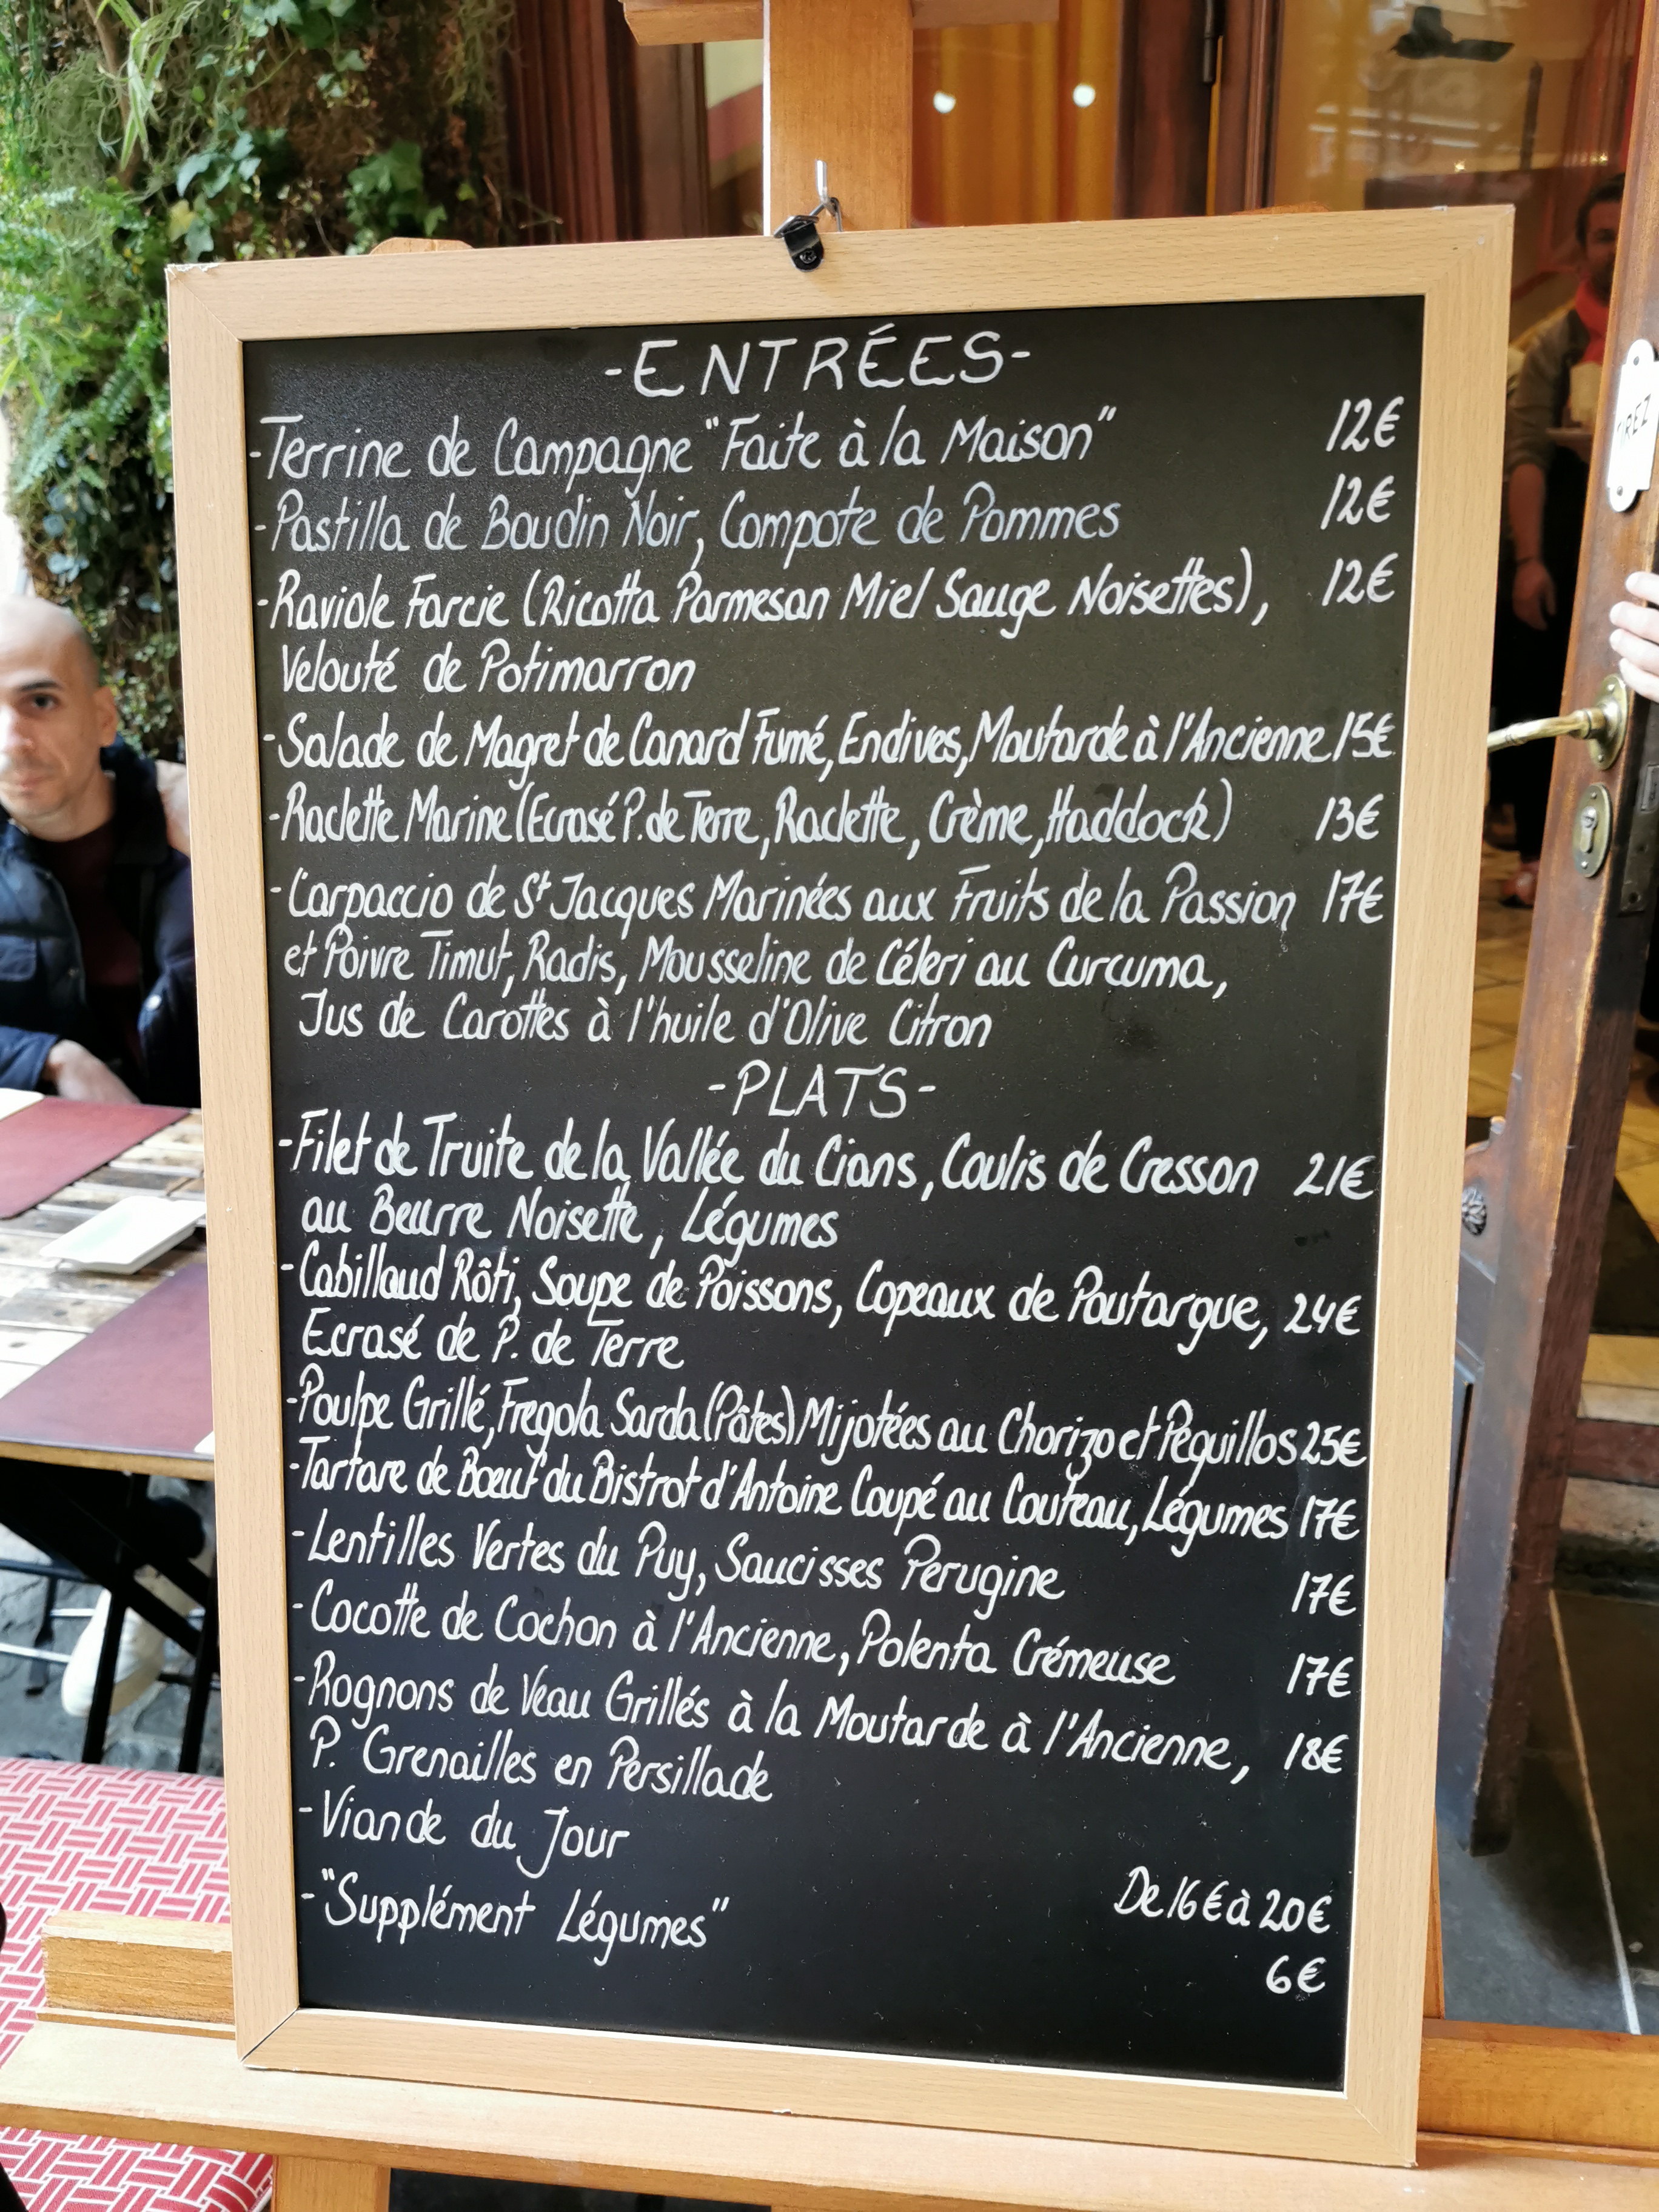 -ENTRÉES-
-Terrine de Campagne "Faite à la Maison" 12€
-Pastilla de Boudin Noir, Compote de Pommes 12€
-Raviole Farcie (Ricotta Parmesan Miel Sauge Noisettes), 12€
Velouté de Potimarron
-Salade de Magret de Canard Fumé, Endives, Moutarde à l'Ancienne 15€
-Raclette Marine (Ecrasé P. de Terre, Raclette, Crème, Haddock) 13€
-Carpaccio de St Jacques Marinées aux Fruits de la Passion 17€
et Poivre Timut, Radis, Mousseline de Céleri au Curcuma,
Jus de Carottes à l'huile d'Olive Citron
-PLATS-
-Filet de Truite de la Vallée du Cians, Coulis de Cresson 21€
au Beurre Noisette, Légumes
-Cabillaud Rôti, Soupe de Poissons, Copeaux de Poutargue, 24€
Ecrasé de P. de Terre
-Poulpe Grillé, Fregola Sarda (Pâtes) Mijotées au Chorizo et Pequillos 25€
-Tartare de Boeuf du Bistrot d'Antoine Coupé au Couteau, Légumes 17€
-Lentilles Vertes du Puy, Saucisses Perugine 17€
-Cocotte de Cochon à l'Ancienne, Polenta Crémeuse 17€
-Rognons de Veau Grillés à la Moutarde à l'Ancienne, 18€
P. Grenailles en Persillade
-Viande du Jour De 16€ à 20€
-"Supplément Légumes" 6€